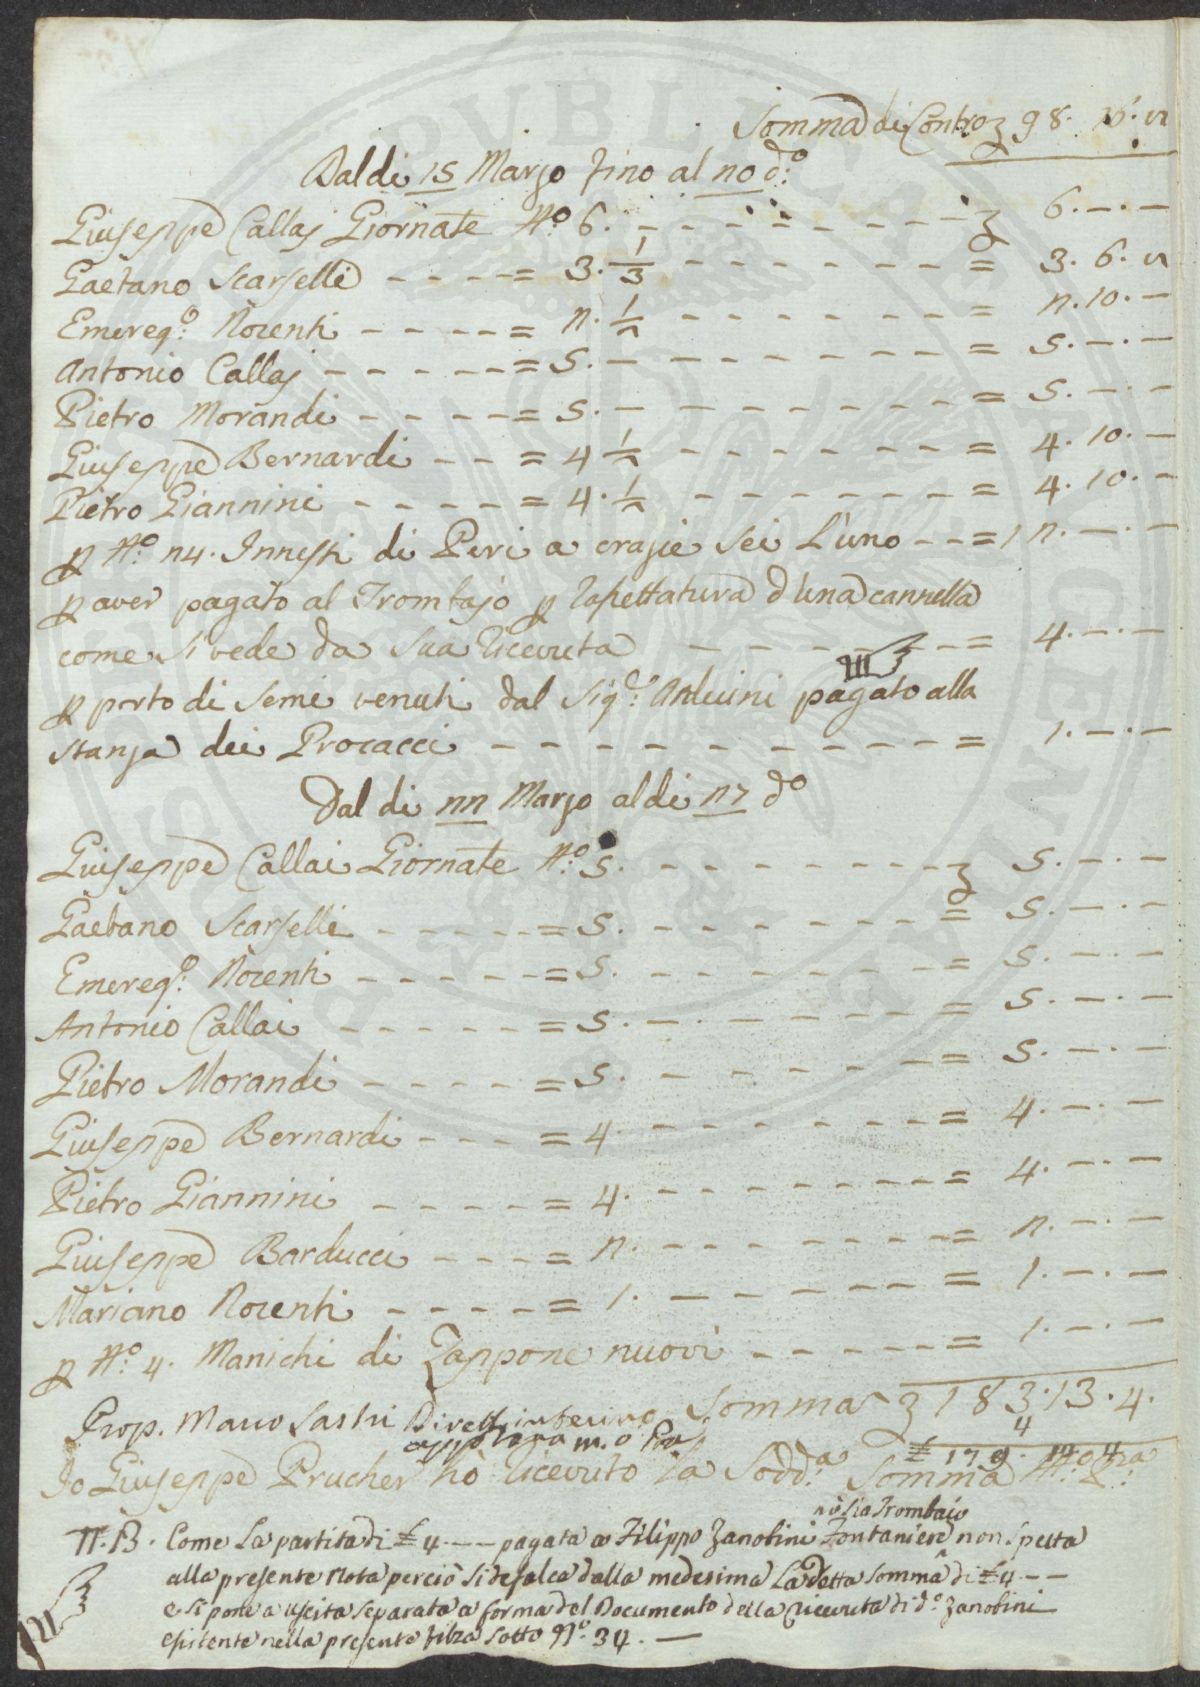 Somma di Contro ʒ 98. 16. 2
Dal di 15 Marzo fino al 20 d.º
Giuseppe Callaj Giornate Nº 6. - - - - - - - - ʒ 6. — . —
Gaetano Scarselli - - - - = 3. 1/3 - - - - - - - = 3. 6. 2
Emereg.º Norenti - - - - = 2. 1/2 - - - - - - - = 2. 10. —
Antonio Callaj - - - - - = 5. — - - - - - - - = 5. — . —
Pietro Morandi - - - - - = 5. — - - - - - - - = 5. — . —
Giuseppe Bernardi - - = 4 1/2 - - - - - - - = 4. 10. —
Pietro Giannini - - - - - = 4. 1/2 - - - - - - - = 4. 10. —
p Nº 24. Innesti di Peri a crazie sei L'uno - - = 12. — . —
p aver pagato al Trombajo p rasettatura d'una cannella
come si vede da sua ricevuta - - - - - - = 4. — . —
p porto di semi venuti dal Sig.e Arduini pagato alla
stanza dei Procacci - - - - - - - - - - - = 1. — . —
Dal di 22 Marzo al di 27 dº
Giuseppe Callai Giornate Nº 5. - - - - - - - - ʒ 5. — . —
Gaetano Scarselli - - - - - = 5. - - - - - - - = 5. — . —
Emereg.º Norenti - - - - - = 5. - - - - - - - = 5. — . —
Antonio Callai - - - - - = 5. — . - - - - - - = 5. — . —
Pietro Morandi - - - - = 5. - - - - - - - = 5. — . —
Giuseppe Bernardi - - - = 4. - - - - - - - = 4. — . —
Pietro Giannini - - - - = 4. - - - - - - - = 4. — . —
Giuseppe Barducci - - - = 2. - - - - - - - = 2. — . —
Mariano Norenti - - - - = 1. — - - - - - - = 1. — . —
p Nº 4. Manichi di Zappone nuovi - - - - - = 1. — . —
Somma ʒ 183. 13. 4.
Prop. Marco Lastri Dirett. interino
4
approva m.o p.a
£ 179. 14. 4
Io Giuseppe Prucher hò ricevuto la Sodd.a Somma
ò sia Trombaio
N.B. Come La partita di £ 4. — — pagata a Filippo Zanobini Fontaniere non spetta
alla presente Nota perciò si defalca dalla medesima La detta somma di £ 4 — —
e si pone a uscita separata a forma del Documento della ricevuta di d.º Zanobini
esistente nella presente filza sotto Nº. 34. —